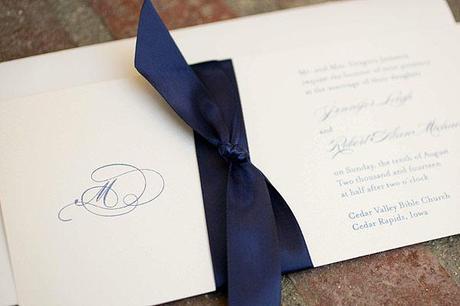 M
Mr. and Mrs. Gregory Jammers
request the honour of your presence
at the marriage of their daughter
Jennifer Leigh
and
Robert Adam
on Sunday, the tenth of August
Two thousand and fourteen
at half after two o'clock
Cedar Valley Bible Church
Cedar Rapids, Iowa